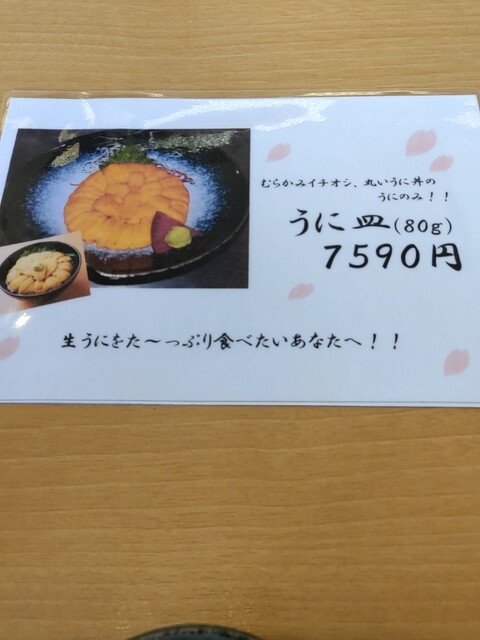 むらかみイチオシ、丸いうに丼の
うにのみ！！
うに皿(80g)
7590円
生うにをた～っぷり食べたいあなたへ！！